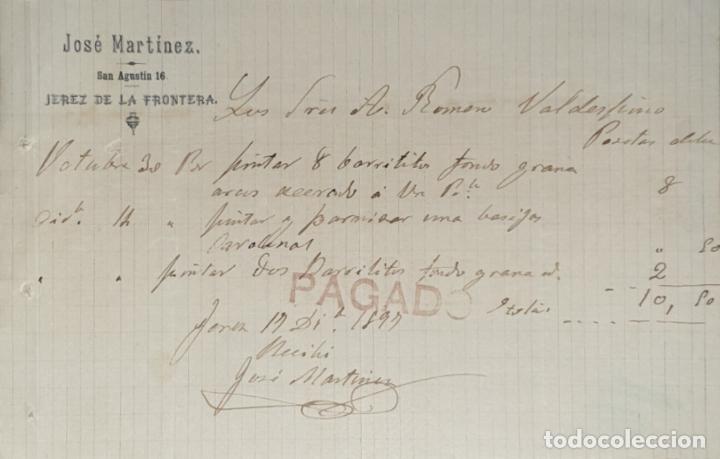 José Martínez.
San Agustín 16
JEREZ DE LA FRONTERA.
Los Sres A. Romero Valdespino
Pesetas
Octubre 30 Por pintar 8 barrilitos fondo grana
aros acerado á Un Pta 8
Dic. " pintar y barnizar una
" 50
" " pintar dos Barrilitos fondo grana 2
PAGADO
10, 50
Jerez 17 Dic. 1897
Recibi
José Martinez
todocoleccion.net